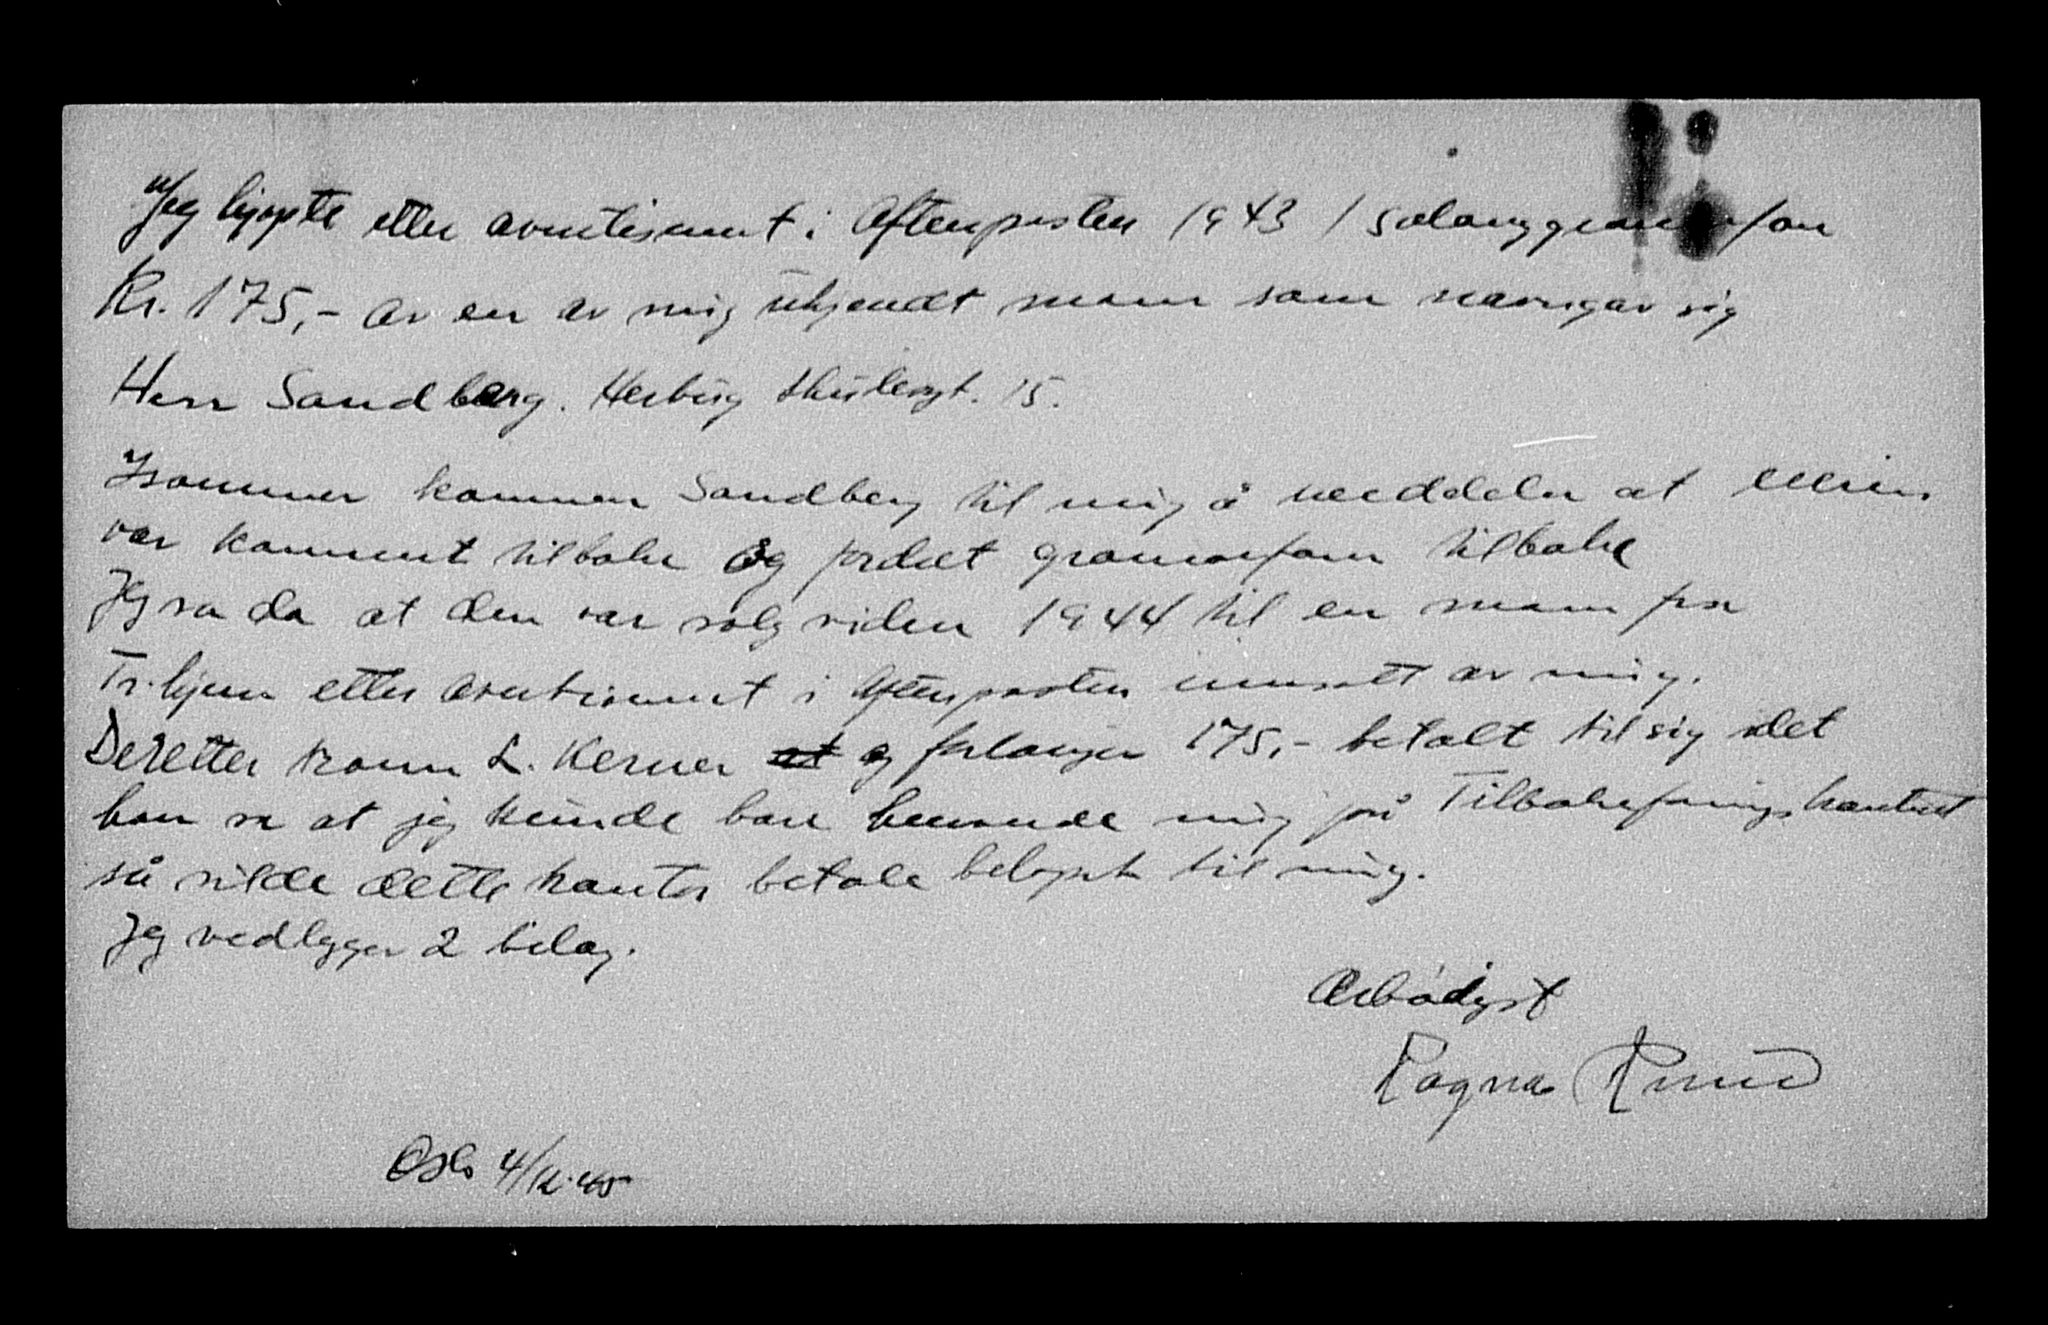 Jeg kjøpte etter avertisment i Aftenposten 1943 1 salonggramofon
Kr. 175,- av en av mig ukjendt mann som navngav sig
Herr Sandberg. Herbirg 15.
Isommer kommer Sandberg til mig å meddeler at
var kommet tilbake og fordret gramofonen tilbake
Jeg sa da at den var solg viden 1944 til en mann fra
Tr.hjem etter avertisment i Aftenposten innsatt av mig.
Deretter kom L. Kerner og forlanger 175,- betalt til sig idet
han sa at jeg kunde bare henvende mig på Tilbakeføringskontoret
så vilde dette kontor betale beløpet til mig.
Jeg vedlegger 2 bilag.
Ærbødigst
Ragna Ruud
Oslo 4/12.45